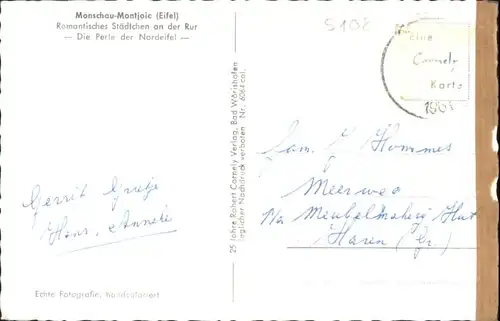 Monschau-Montjoie (Eifel)
Romantisches Städtchen an der Rur
— Die Perle der Nordeifel —
5108
Eine
Cornely
Karte
25 Jahre Robert Cornely Verlag, Bad Wörishofen
Jeglicher Nachdruck verboten Nr. 6064 col.
Fam. G Hommes
Meerweg
Haren (Gr.)
Gerrit Grietje
Hans, Anneke
Echte Fotografie, handcoloriert